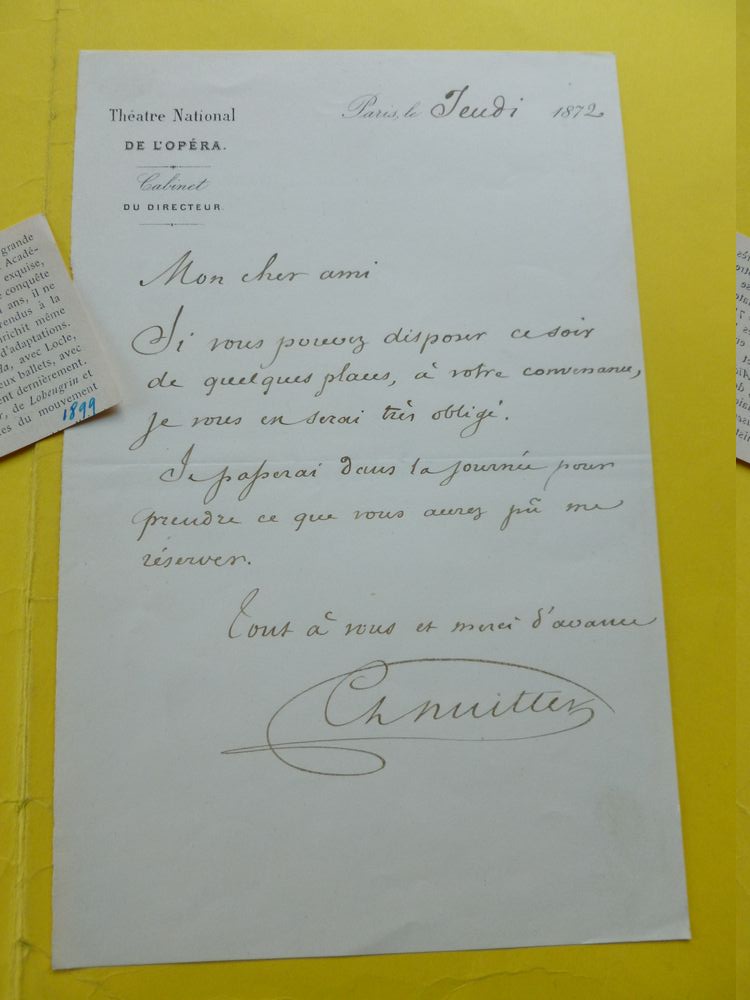 Théatre National
DE L'OPÉRA.
Cabinet
DU DIRECTEUR
Paris, le Jeudi 1872
Mon cher ami
Si vous pouvez disposer ce soir
de quelques places, à votre convenance,
je vous en serai très obligé.
Je passerai dans la journée pour
prendre ce que vous aurez pû me
réserver.
Tout à vous et merci d'avance
Ch Nuitter
grande
Acadé-
exquise,
conquête
ans, il ne
rendus à la
nrichit même
d'adaptations.
avec Locle,
eux ballets, avec
ent dernièrement.
de Lohengrin et
es du mouvement
1899